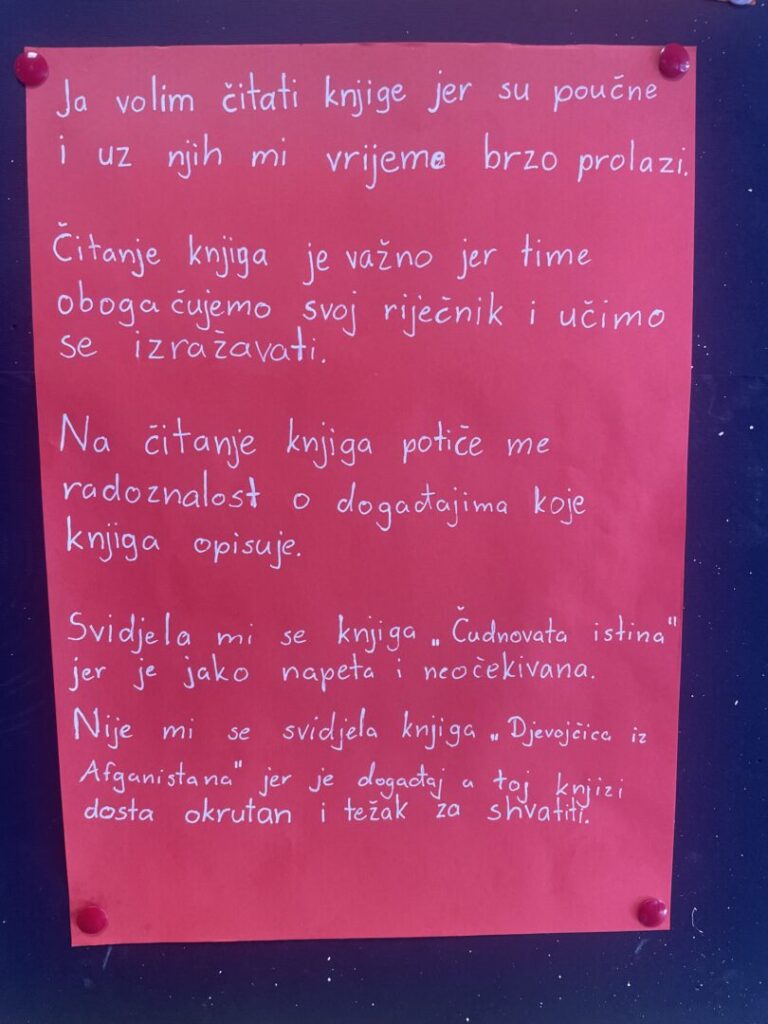 Ja volim čitati knjige jer su poučne
i uz njih mi vrijeme brzo prolazi.
Čitanje knjiga je važno jer time
obogaćujemo svoj riječnik i učimo
se izražavati.
Na čitanje knjiga potiče me
radoznalost o događajima koje
knjiga opisuje.
Svidjela mi se knjiga „Čudnovata istina"
jer je jako napeta i neočekivana.
Nije mi se svidjela knjiga „Djevojčica iz
Afganistana" jer je događaj u toj knjizi
dosta okrutan i težak za shvatiti.